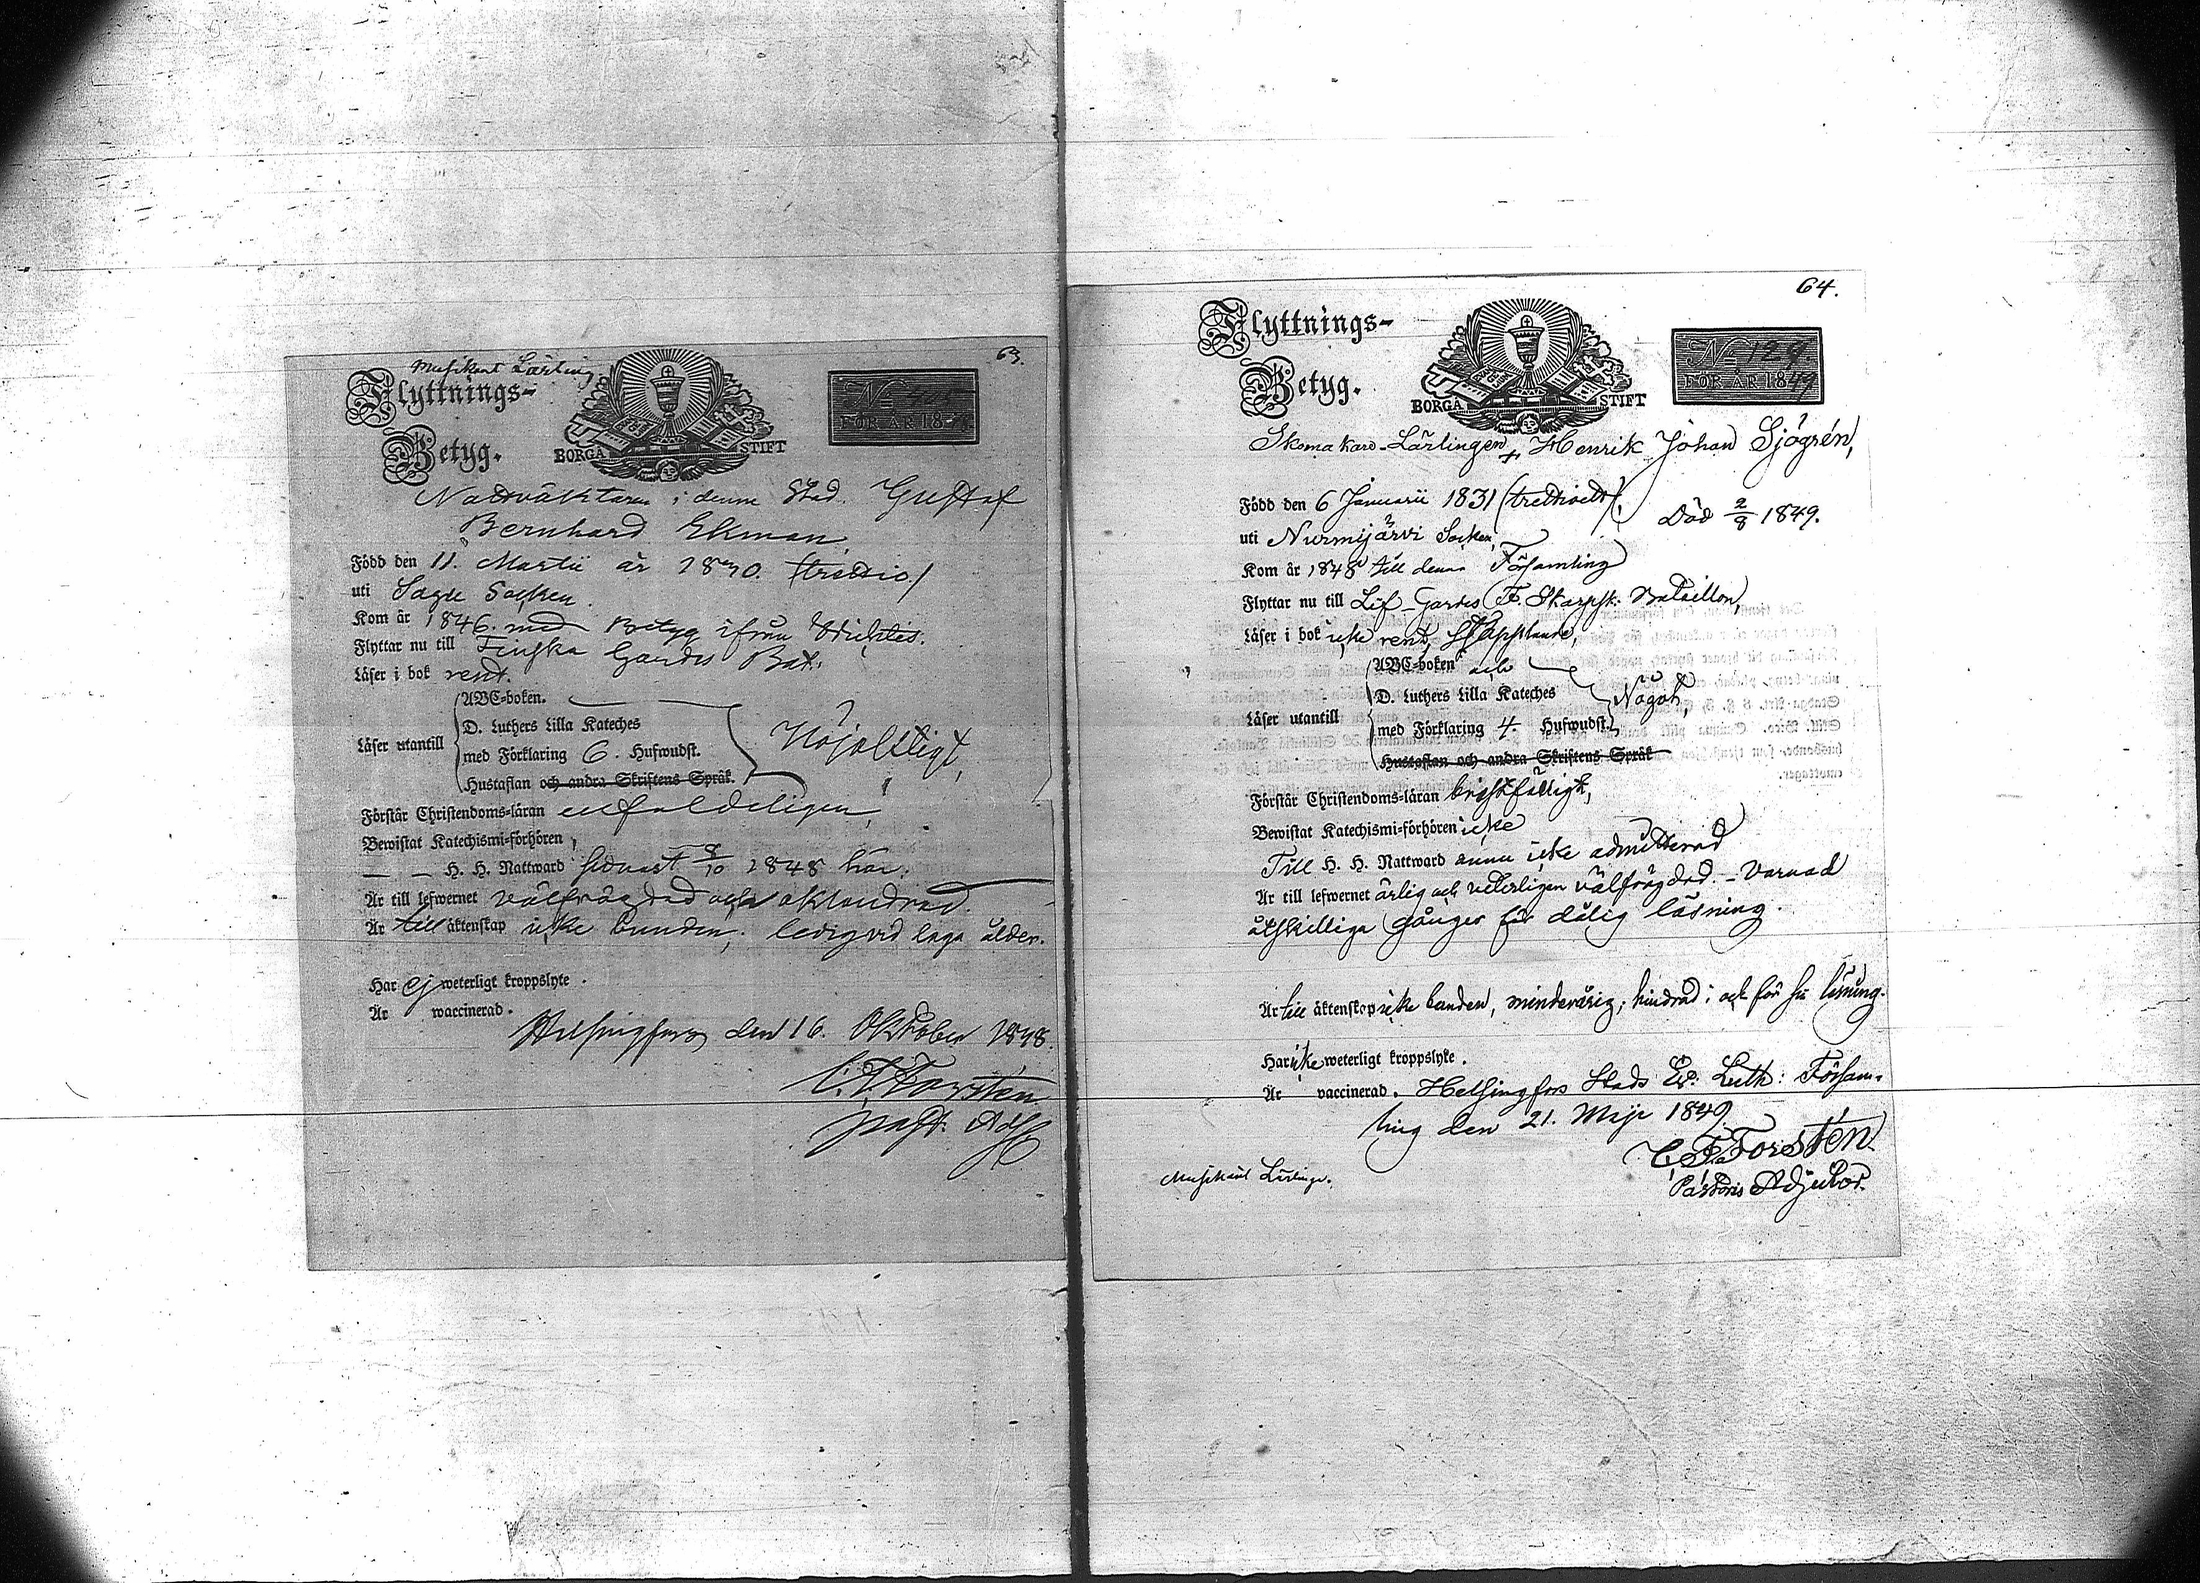 63.
Musikant Lärling
Flyttnings-
Betyg.
BORGÅ STIFT
No
FÖR ÅR 184
Nattväktaren i denna Stad Gustaf
Bernhard Ekman,
Född den 11. Martii år 1830. (trettio)
uti Sagu Socken.
Kom år 1846. med Betyg ifrån Wichtis.
Flyttar nu till Finska Gardes Bat.
Läser i bok rent.
ABC-boken.
D. Luthers Lilla Kateches
Läser utantill
med Förklaring 6. Hufwudst.
Nöjaktligt,
Hustaflan och andra Skriftens Språk.
Förstår Christendoms-läran enfaldeligen,
Bewistat Katechismi-förhören,
— — H. H. Nattward sednast 8/10 1848 här.
Är till lefwernet välfrägdad och oklandrad.
Är till äktenskap icke bunden; ledig vid laga ålder.
Har ej weterligt kroppslyte.
Är waccinerad.
Helsingfors den 16. Oktober 1848.
C. F. Forstén
past. Adj.
64.
Flyttnings-
Betyg.
BORGÅ STIFT
No 129.
FÖR ÅR 1849
Skomakare-Lärlingen + Henrik Johan Sjögrén,
Född den 6 Januarii 1831 (trettioett),
Död 2/8 1849.
uti Nurmijärvi Socken,
Kom år 1848 till denna Församling
Flyttar nu till Lif-Gardes F. Skarpsk: Bataillon,
Läser i bok icke rent,
ABC-boken och
D. Luthers Lilla Kateches
Något,
Läser utantill
med Förklaring 4. Hufwudst.
Hustaflan och andra Skriftens Språk
Förstår Christendoms-läran bristfälligt,
Bewistat Katechismi-förhören icke
Till H. H. Nattward ännu icke admitterad
Är till lefwernet ärlig och veterligen välfrägdad. – Varnad
åtskilliga gånger för dålig läsning.
Är till äktenskap icke bunden, minderårig; hindrad; och för sin läsning.
Har icke weterligt kroppslyte.
Är vaccinerad. Helsingfors Stads Ev: Luth: Försam-
ling den 21. Maji 1849.
C. F. Forstén
Pastoris Adjutor.
Musikant Lärling.